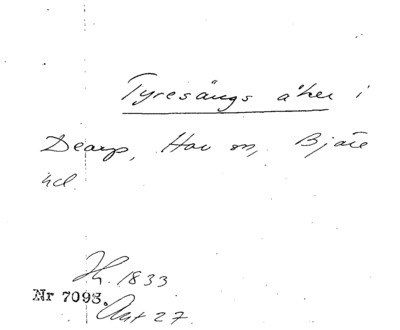 Tyresängs åker i
Dearp, Hov sn, Bjäre
hd.
Jh. 1833
Nr 7093.
Ant 27.